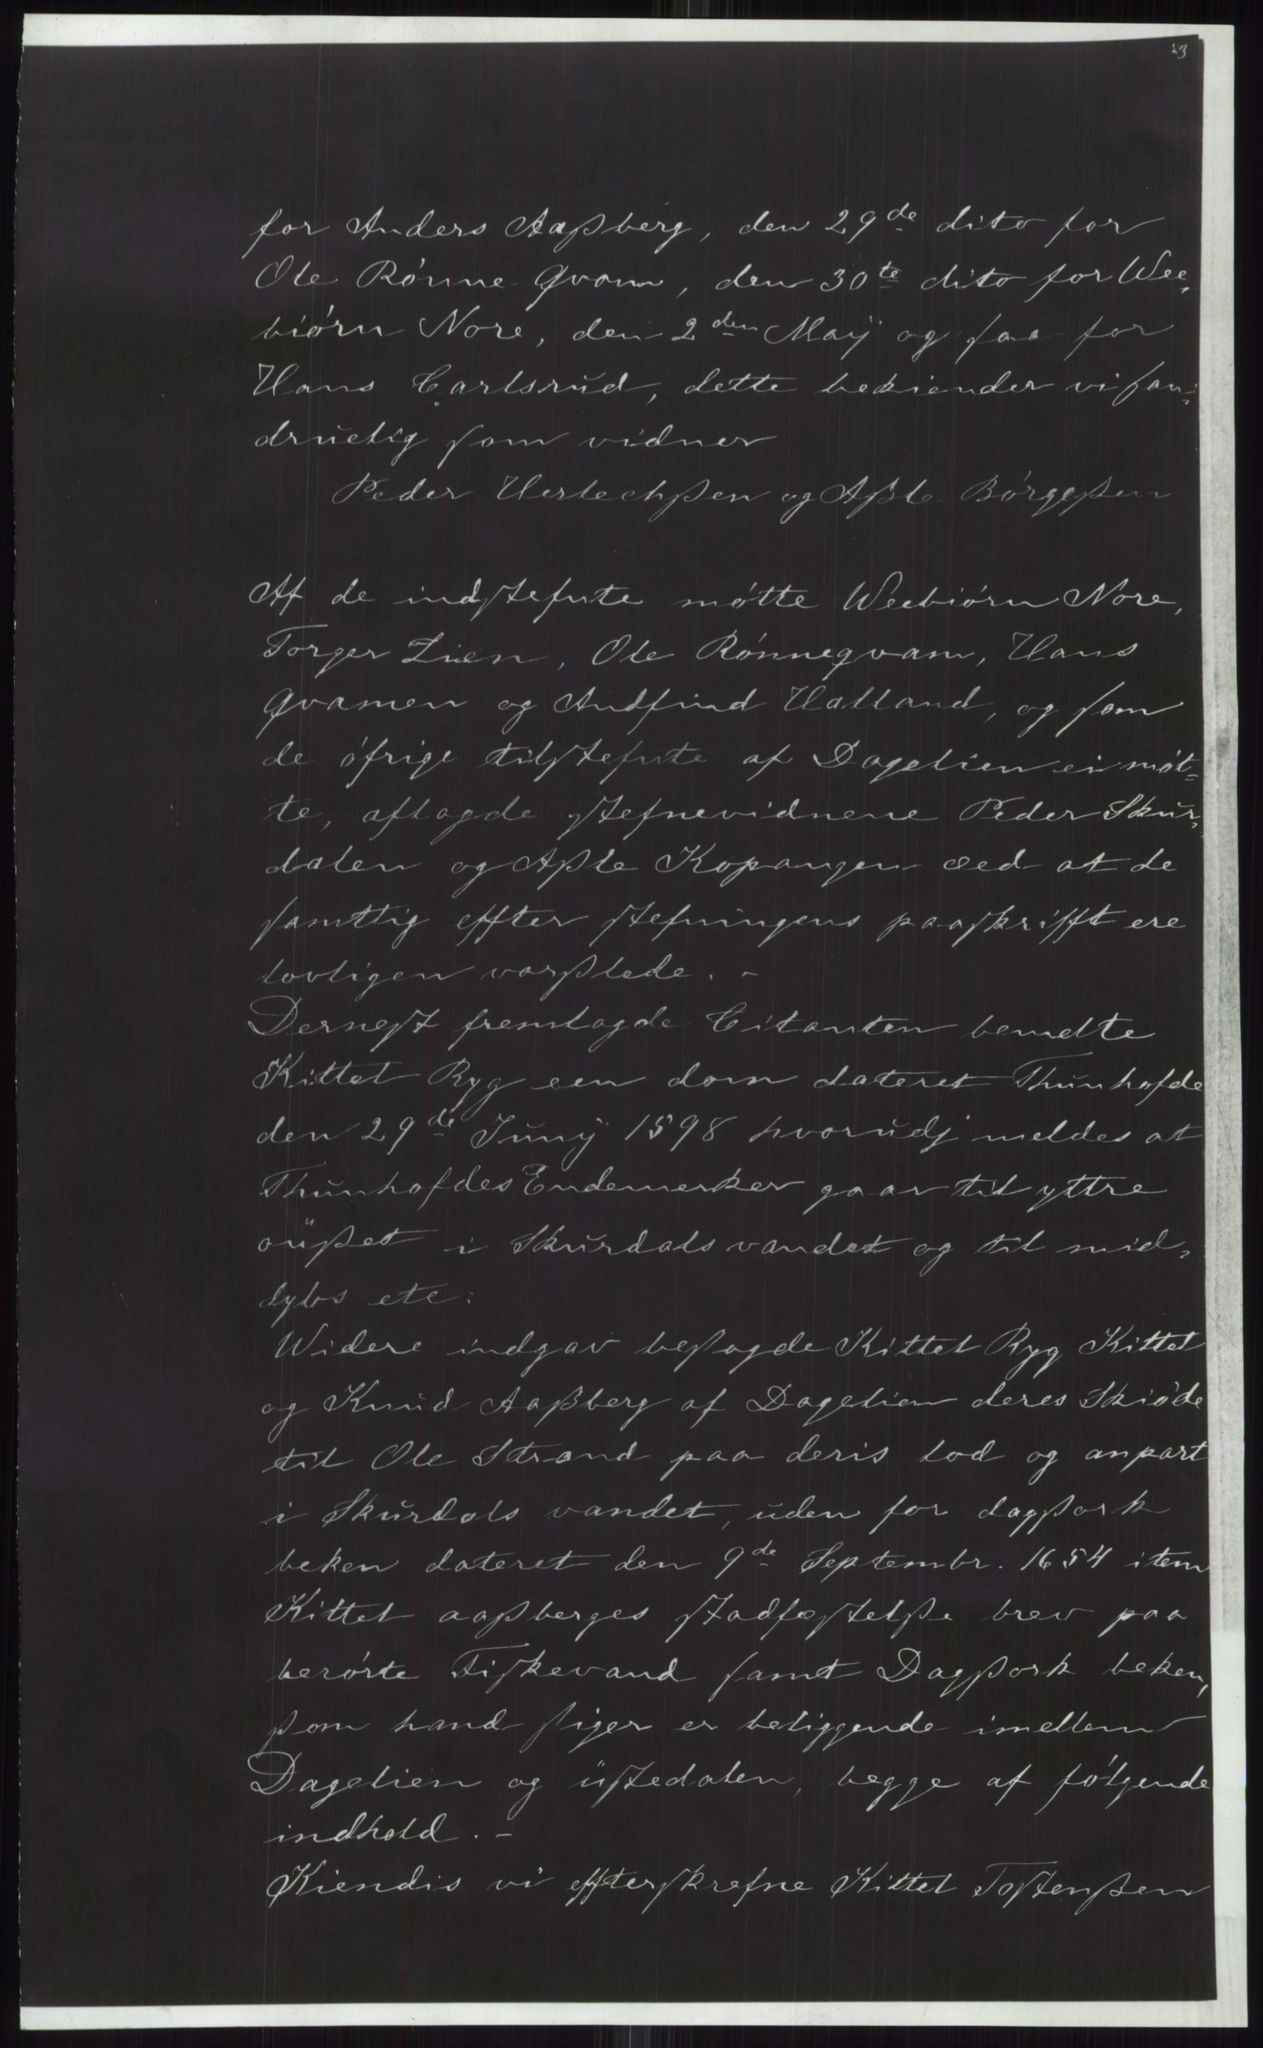 23
for Anders Aaßberg, den 29de dito for
Ole Rønne Qvam, den 30te dito for Wee,
biørn Nore, den 2den Maÿ og saa for
Hans Carlsrud, dette bekiender vi san,
druelig som vidner
Peder Herlechßen og Aßle Børgeßen
Af de indstefnte møtte Weebiørn Nore,
Torger Lien, Ole Rønneqvam, Hans
Qvamen og Andfind Halland, og som
de øfrige tilstefnte af Dagelien ei møt=
te, aflagde stefnevidnene Peder Skur,
dalen og Aßle Kopangen eed at de
samtlig effter stefningens paaskrifft ere
lovligen varßlede. -
Dernest fremlagde Citanten bemelte
Kittel Ryg een dom dateret Thunhofde
den 29de Junÿ 1598 hvorudj meldes at
Thunhofdes Endemerker gaar til yttre
oüßet i Skurdals vandet og til mid,
dybs etc:
Widere indgav beßagde Kittel Ryg Kittel
og Knud Aaßberg af Dagelien deres Skiøde
til Ole Strand paa deris lod og anpart
i Skurdals vandet, uden for dagßork
beken dateret den 9de Septembr. 1654 item
Kittel aaßberges stadfestelße brev paa
berørte Fiskevand samt Dagßork beken,
ßom hand siger er beliggende imellem
Dagelien og üstedalen, begge af følgende
indhold. -
Kiendis vi effterskrefne Kittel Tostenßen